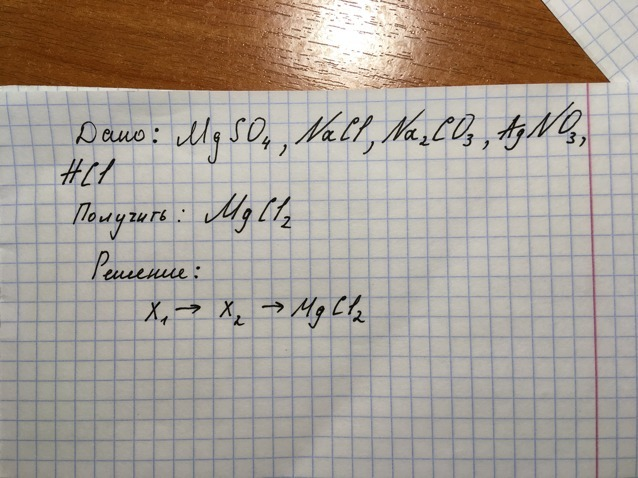 Дано: MgSO₄, NaCl, Na₂CO₃, AgNO₃,
HCl
Получить: MgCl₂
Решение:
X₁ → X₂ → MgCl₂